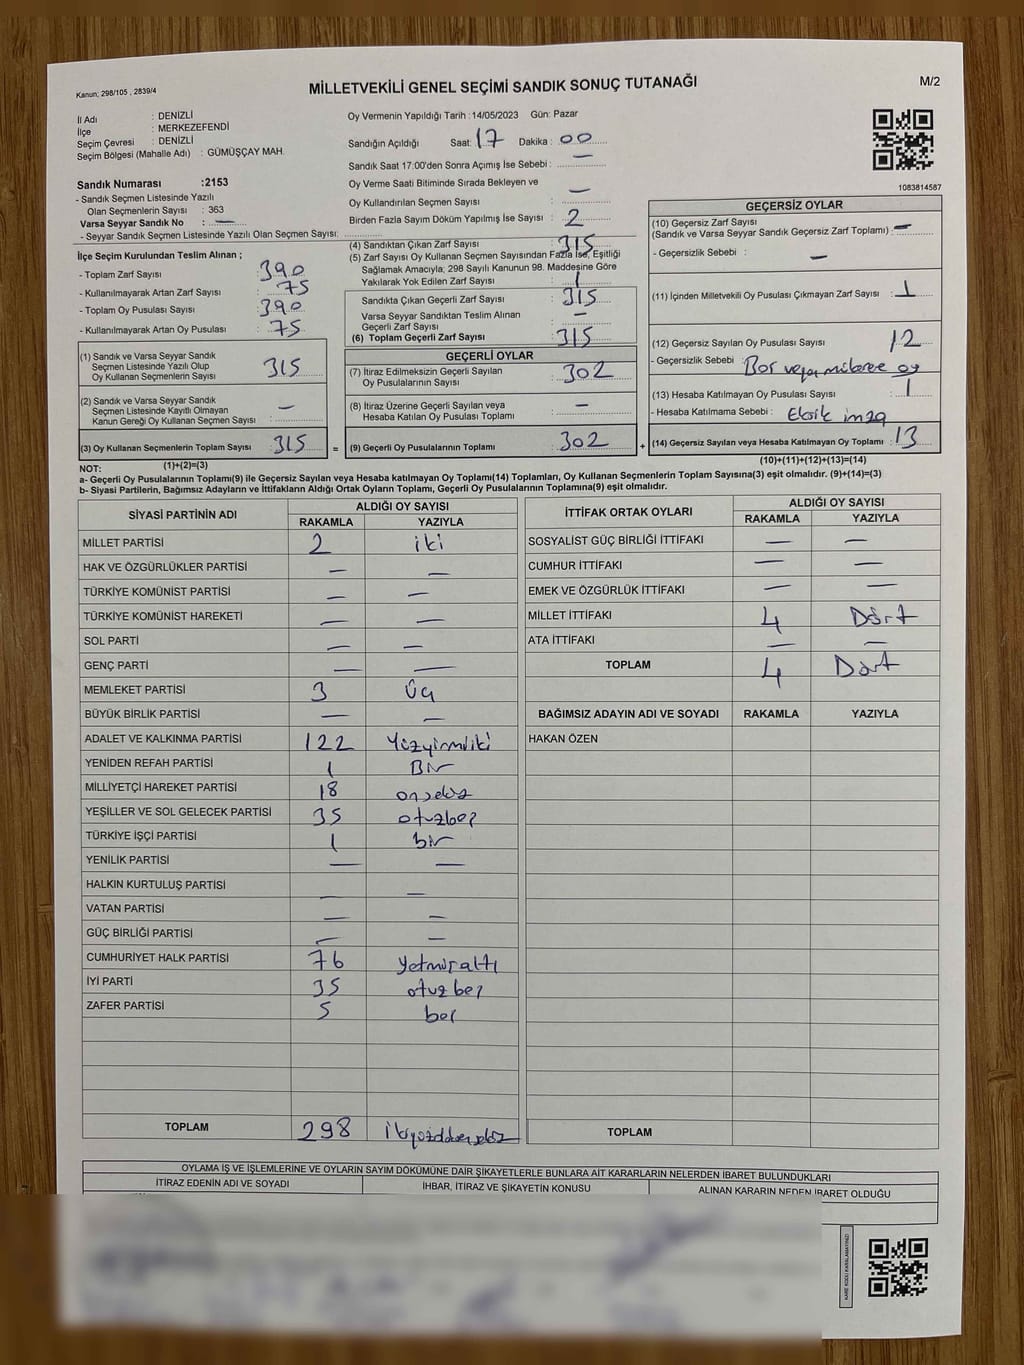 Kanun; 298/105 , 2839/4
MİLLETVEKİLİ GENEL SEÇİMİ SANDIK SONUÇ TUTANAĞI
M/2
İl Adı : DENİZLİ
İlçe : MERKEZEFENDİ
Seçim Çevresi : DENİZLİ
Seçim Bölgesi (Mahalle Adı) : GÜMÜŞÇAY MAH.
Sandık Numarası :2153
- Sandık Seçmen Listesinde Yazılı
Olan Seçmenlerin Sayısı : 363
Varsa Seyyar Sandık No : —
- Seyyar Sandık Seçmen Listesinde Yazılı Olan Seçmen Sayısı:
Oy Vermenin Yapıldığı Tarih : 14/05/2023 Gün: Pazar
Sandığın Açıldığı Saat: 17 Dakika : 00
Sandık Saat 17:00'den Sonra Açımış İse Sebebi : —
Oy Verme Saati Bitiminde Sırada Bekleyen ve
Oy Kullandırılan Seçmen Sayısı : —
Birden Fazla Sayım Döküm Yapılmış İse Sayısı : 2
1083814587
İlçe Seçim Kurulundan Teslim Alınan ;
- Toplam Zarf Sayısı : 390
- Kullanılmayarak Artan Zarf Sayısı : 75
- Toplam Oy Pusulası Sayısı : 390
- Kullanılmayarak Artan Oy Pusulası : 75
(1) Sandık ve Varsa Seyyar Sandık
Seçmen Listesinde Yazılı Olup
Oy Kullanan Seçmenlerin Sayısı : 315
(2) Sandık ve Varsa Seyyar Sandık
Seçmen Listesinde Kayıtlı Olmayan
Kanun Gereği Oy Kullanan Seçmen Sayısı : —
(3) Oy Kullanan Seçmenlerin Toplam Sayısı : 315 =
(1)+(2)=(3)
(4) Sandıktan Çıkan Zarf Sayısı : 315
(5) Zarf Sayısı Oy Kullanan Seçmen Sayısından Fazla İse, Eşitliği
Sağlamak Amacıyla; 298 Sayılı Kanunun 98. Maddesine Göre
Yakılarak Yok Edilen Zarf Sayısı :
Sandıkta Çıkan Geçerli Zarf Sayısı : 315
Varsa Seyyar Sandıktan Teslim Alınan
Geçerli Zarf Sayısı : —
(6) Toplam Geçerli Zarf Sayısı : 315
GEÇERLİ OYLAR
(7) İtiraz Edilmeksizin Geçerli Sayılan
Oy Pusulalarının Sayısı : 302
(8) İtiraz Üzerine Geçerli Sayılan veya
Hesaba Katılan Oy Pusulası Toplamı : —
(9) Geçerli Oy Pusulalarının Toplamı : 302 +
GEÇERSİZ OYLAR
(10) Geçersiz Zarf Sayısı
(Sandık ve Varsa Seyyar Sandık Geçersiz Zarf Toplamı) : —
- Geçersizlik Sebebi : —
(11) İçinden Milletvekili Oy Pusulası Çıkmayan Zarf Sayısı :
(12) Geçersiz Sayılan Oy Pusulası Sayısı : 12
- Geçersizlik Sebebi : Boş veya mükerrer oy
(13) Hesaba Katılmayan Oy Pusulası Sayısı : 1
- Hesaba Katılmama Sebebi : Eksik imza
(14) Geçersiz Sayılan veya Hesaba Katılmayan Oy Toplamı : 13
(10)+(11)+(12)+(13)=(14)
NOT:
a- Geçerli Oy Pusulalarının Toplamı(9) ile Geçersiz Sayılan veya Hesaba katılmayan Oy Toplamı(14) Toplamları, Oy Kullanan Seçmenlerin Toplam Sayısına(3) eşit olmalıdır. (9)+(14)=(3)
b- Siyasi Partilerin, Bağımsız Adayların ve İttifakların Aldığı Ortak Oyların Toplamı, Geçerli Oy Pusulalarının Toplamına(9) eşit olmalıdır.
SİYASİ PARTİNİN ADI ALDIĞI OY SAYISI
RAKAMLA YAZIYLA
MİLLET PARTİSİ 2 iki
HAK VE ÖZGÜRLÜKLER PARTİSİ — —
TÜRKİYE KOMÜNİST PARTİSİ — —
TÜRKİYE KOMÜNİST HAREKETİ — —
SOL PARTİ — —
GENÇ PARTİ — —
MEMLEKET PARTİSİ 3 üç
BÜYÜK BİRLİK PARTİSİ — —
ADALET VE KALKINMA PARTİSİ 122 Yüzyirmiiki
YENİDEN REFAH PARTİSİ 1 Bir
MİLLİYETÇİ HAREKET PARTİSİ 18 onsekiz
YEŞİLLER VE SOL GELECEK PARTİSİ 35 otuzbeş
TÜRKİYE İŞÇİ PARTİSİ 1 bir
YENİLİK PARTİSİ — —
HALKIN KURTULUŞ PARTİSİ — —
VATAN PARTİSİ — —
GÜÇ BİRLİĞİ PARTİSİ — —
CUMHURİYET HALK PARTİSİ 76 yetmişaltı
İYİ PARTİ 35 otuzbeş
ZAFER PARTİSİ 5 beş
TOPLAM 298 ikiyüzdoksansekiz
İTTİFAK ORTAK OYLARI ALDIĞI OY SAYISI
RAKAMLA YAZIYLA
SOSYALİST GÜÇ BİRLİĞİ İTTİFAKI — —
CUMHUR İTTİFAKI — —
EMEK VE ÖZGÜRLÜK İTTİFAKI — —
MİLLET İTTİFAKI 4 Dört
ATA İTTİFAKI — —
TOPLAM 4 Dört
BAĞIMSIZ ADAYIN ADI VE SOYADI RAKAMLA YAZIYLA
HAKAN ÖZEN
TOPLAM
OYLAMA İŞ VE İŞLEMLERİNE VE OYLARIN SAYIM DÖKÜMÜNE DAİR ŞİKAYETLERLE BUNLARA AİT KARARLARIN NELERDEN İBARET BULUNDUKLARI
İTİRAZ EDENİN ADI VE SOYADI İHBAR, İTİRAZ VE ŞİKAYETİN KONUSU ALINAN KARARIN NEDEN İBARET OLDUĞU
KARE KODU KARALAMAYINIZ!